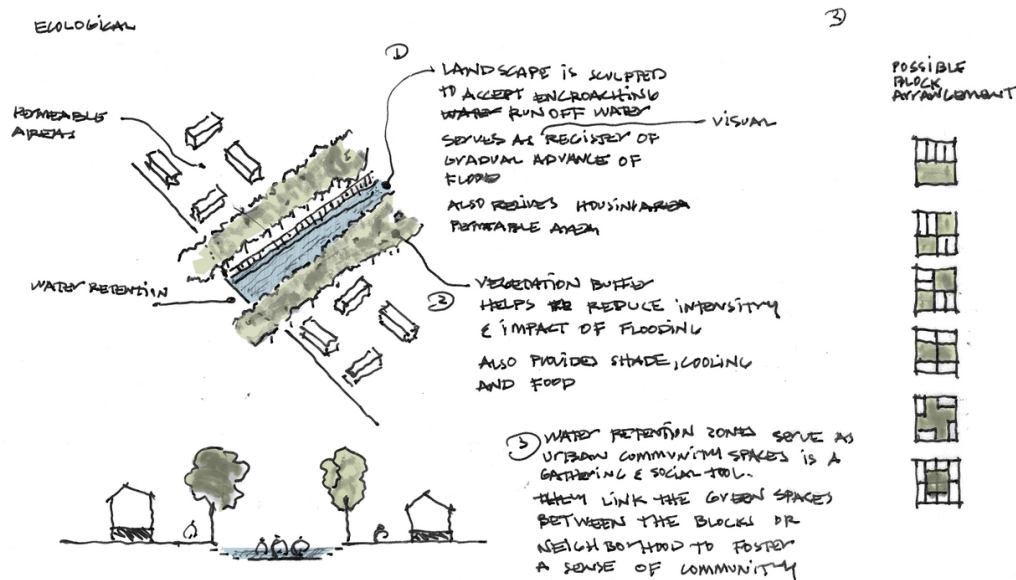 ECOLOGICAL
PERMEABLE
AREAS
WATER RETENTION
1
LANDSCAPE IS SCULPTED
TO ACCEPT ENCROACHING
WATER RUN OFF WATER
SERVES AS REGISTER OF
GRADUAL ADVANCE OF
FLOOD
VISUAL
ALSO RELIEVES HOUSING AREA
PERMEABLE AREA
2
VEGETATION BUFFER
HELPS REDUCE INTENSITY
& IMPACT OF FLOODING
ALSO PROVIDES SHADE, COOLING
AND FOOD
3
WATER RETENTION ZONES SERVE AS
URBAN COMMUNITY SPACES IS A
GATHERING & SOCIAL TOOL.
THEY LINK THE GREEN SPACES
BETWEEN THE BLOCKS OR
NEIGHBORHOOD TO FOSTER
A SENSE OF COMMUNITY
3
POSSIBLE
BLOCK
ARRANGEMENT